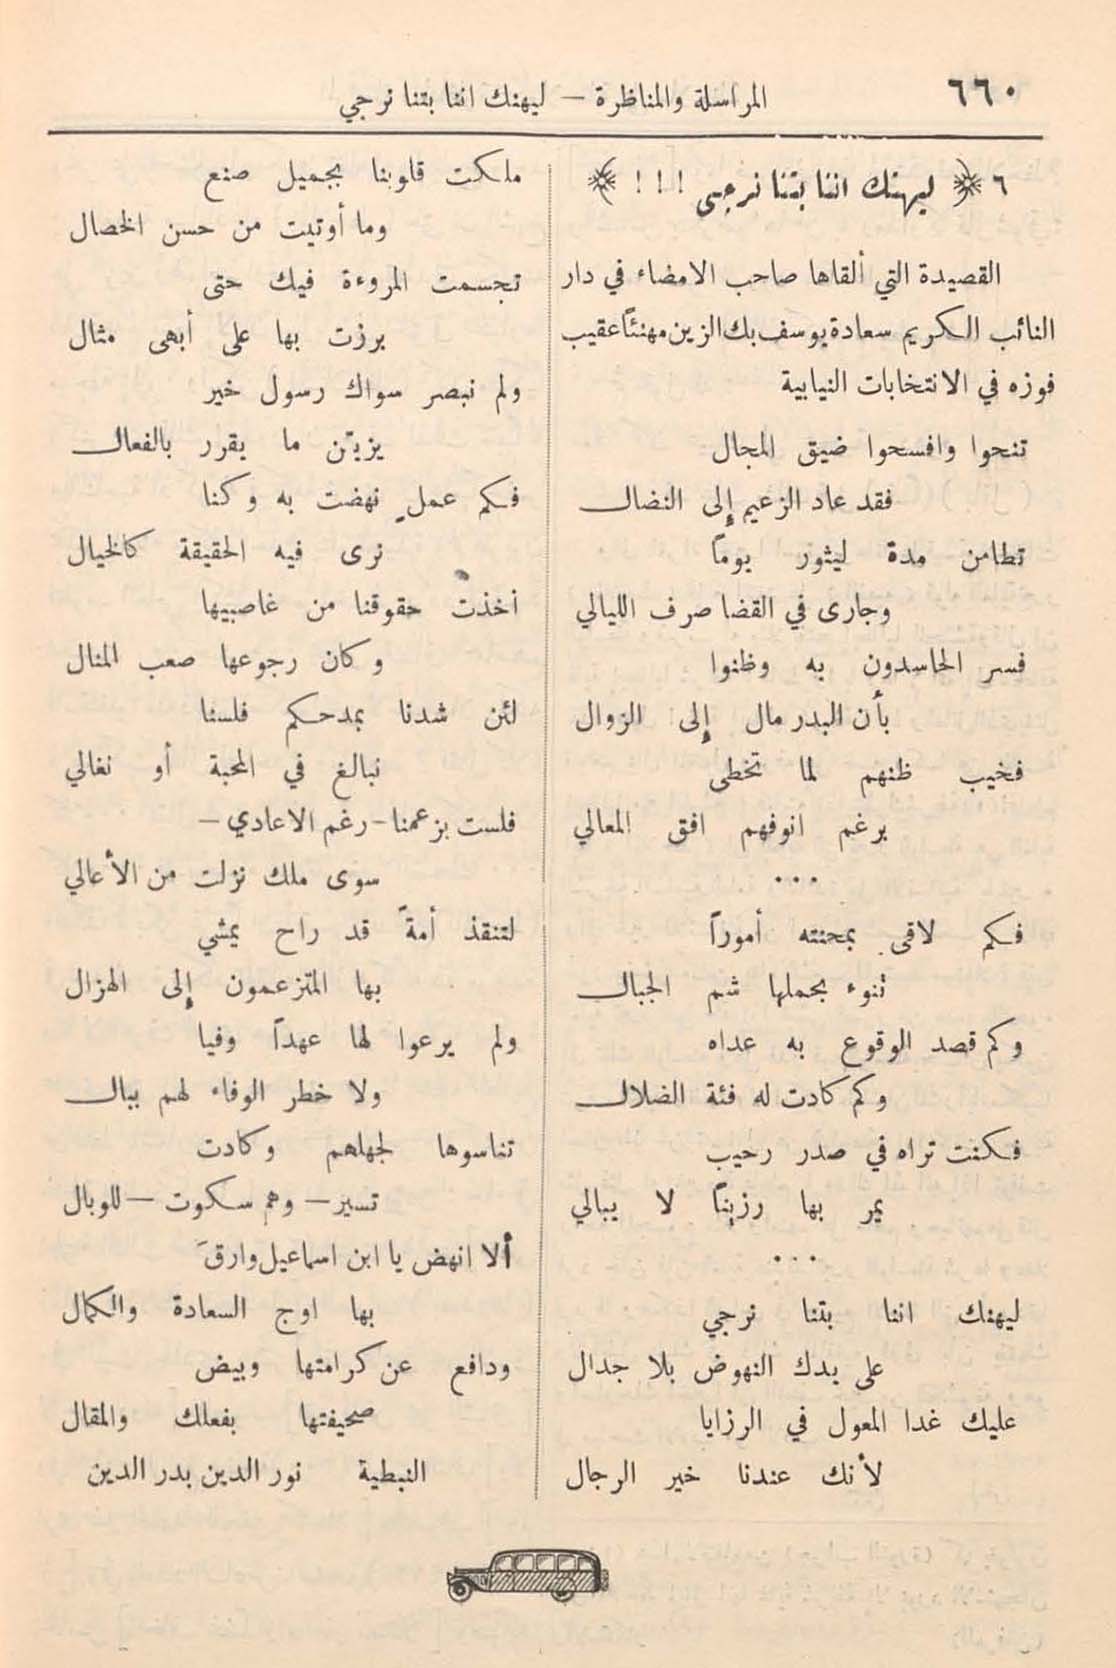 ٦٦٠
المراسلة والمناظرة — ليهنك اننا بتنا نرجي
٦ ﴿ ليهنك اننا بتنا نرجى ! ! ! ﴾
القصيدة التي ألقاها صاحب الامضاء في دار
النائب الكريم سعادة يوسف بك الزين مهنئاً عقيب
فوزه في الانتخابات النيابية
تنحوا وافسحوا ضيق المجال
فقد عاد الزعيم إلى النضال
تطامن مدة ليثور يوماً
وجارى في القضا صرف الليالي
فسر الحاسدون به وظنوا
بأن البدر مال إلى الزوال
فخيب ظنهم لما تخطى
برغم انوفهم افق المعالي
...
فكم لاقى بمحنته أموراً
تنوء بحملها شم الجبال
وكم قصد الوقوع به عداه
وكم كادت له فئة الضلال
فكنت تراه في صدر رحيب
يمر بها رزيناً لا يبالي
...
ليهنك اننا بتنا نرجي
على يدك النهوض بلا جدال
عليك غدا المعول في الرزايا
لأنك عندنا خير الرجال
ملكت قلوبنا بجميل صنع
وما أوتيت من حسن الخصال
تجسمت المروءة فيك حتى
برزت بها على أبهى مثال
ولم نبصر سواك رسول خير
يزيّن ما يقرر بالفعال
فكم عملٍ نهضت به وكنا
نرى فيه الحقيقة كالخيال
أخذت حقوقنا من غاصبيها
وكان رجوعها صعب المنال
لئن شدنا بمدحكم فلسنا
نبالغ في المحبة أو نغالي
فلست بزعمنا - رغم الاعادي -
سوى ملك نزلت من الأعالي
لتنقذ أمةً قد راح يمشي
بها المتزعمون إلى الهزال
ولم يرعوا لها عهداً وفيا
ولا خطر الوفاء لهم ببال
تناسوها لجهلهم وكادت
تسير — وهم سكوت — للوبال
ألا انهض يا ابن اسماعيل وارقَ
بها اوج السعادة والكمال
ودافع عن كرامتها وبيض
صحيفتها بفعلك والمقال
النبطية نور الدين بدر الدين